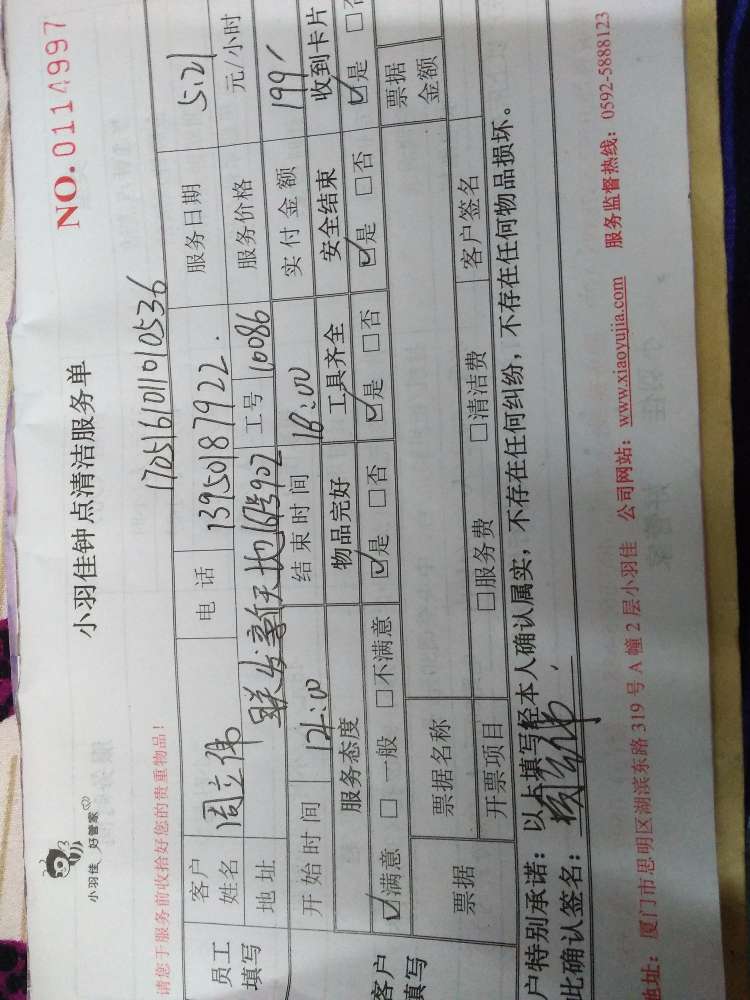 小羽佳 好管家
小羽佳钟点清洁服务单
NO.0114997
请您于服务前收拾好您的贵重物品!
1705161011010536
员工填写
客户姓名 周立伟 电话 13950187922. 服务日期 5.21
地址 联发新天地16号902 工号 10086 服务价格 元/小时
开始时间 12:00 结束时间 16:00 实付金额 199/
客户填写
服务态度 物品完好 工具齐全 安全结束 收到卡片
☑满意 □一般 □不满意 ☑是 □否 ☑是 □否 ☑是 □否 ☑是 □否
票据 票据名称 票据金额
开票项目 □服务费 □清洁费 客户签名
户特别承诺:以上填写经本人确认属实,不存在任何纠纷,不存在任何物品损坏。
此确认签名:
地址:厦门市思明区湖滨东路319号A幢2层小羽佳 公司网站:www.xiaoyujia.com 服务监督热线:0592-5888123